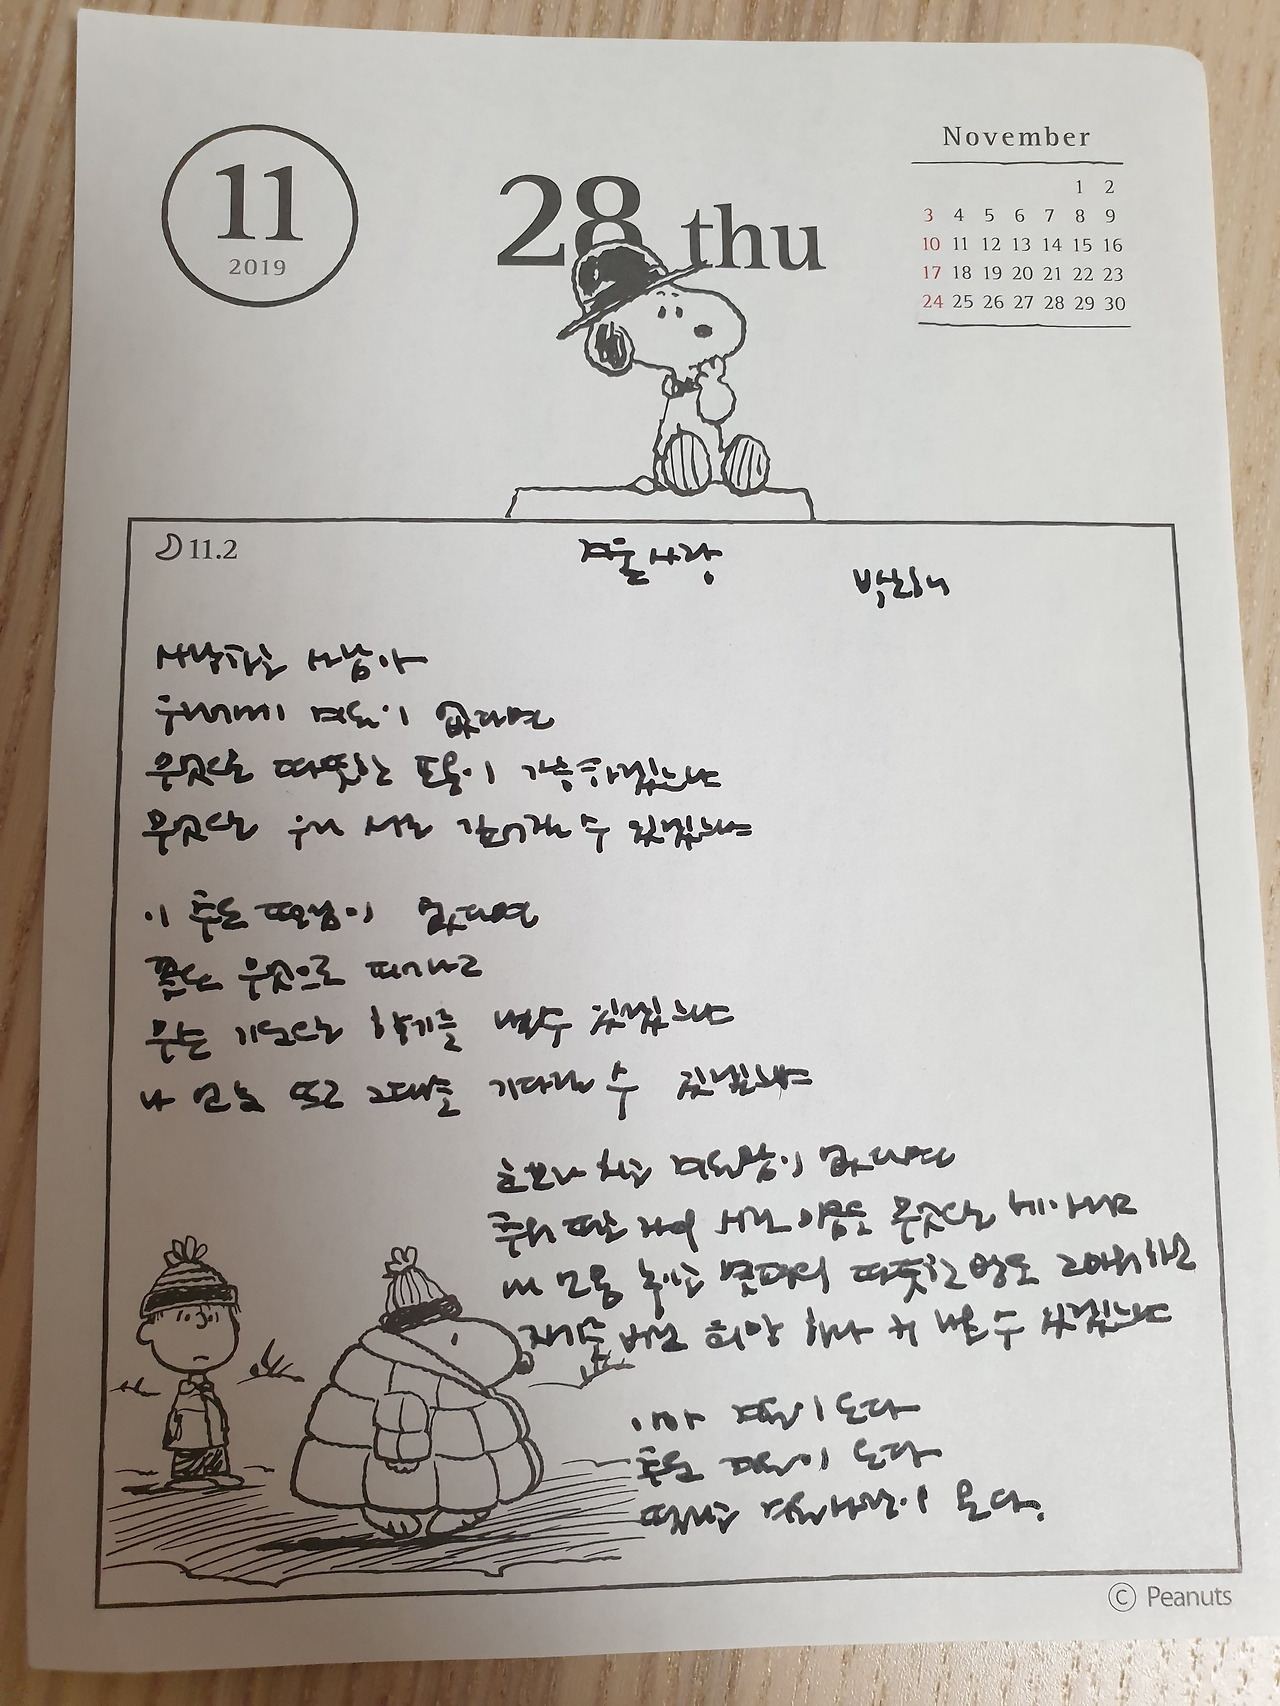 11
2019
28 thu
November
1 2
3 4 5 6 7 8 9
10 11 12 13 14 15 16
17 18 19 20 21 22 23
24 25 26 27 28 29 30
11.2
겨울사랑
박노해
사랑하는 사람아
우리에게 겨울이 없다면
무엇으로 따뜻한 포옹이 가능하겠느냐
무엇으로 우리 서로 깊어질 수 있겠느냐
이 추운 떨림이 없다면
꽃은 무엇으로 피어나고
무슨 기운으로 향기를 낼 수 있겠느냐
나 언 눈 뜨고 그대를 기다릴 수 있겠느냐
눈보라 치는 겨울밤이 없다면
추워 떠는 자의 시린 마음을 무엇으로 헤아리고
내 언 몸 녹일 몇 평의 따뜻한 방을 고마워하고
자기를 버린 희망 하나 커 낼 수 있겠느냐
아아 겨울이 온다
추운 겨울이 온다
떨리는 겨울사랑이 온다.
© Peanuts